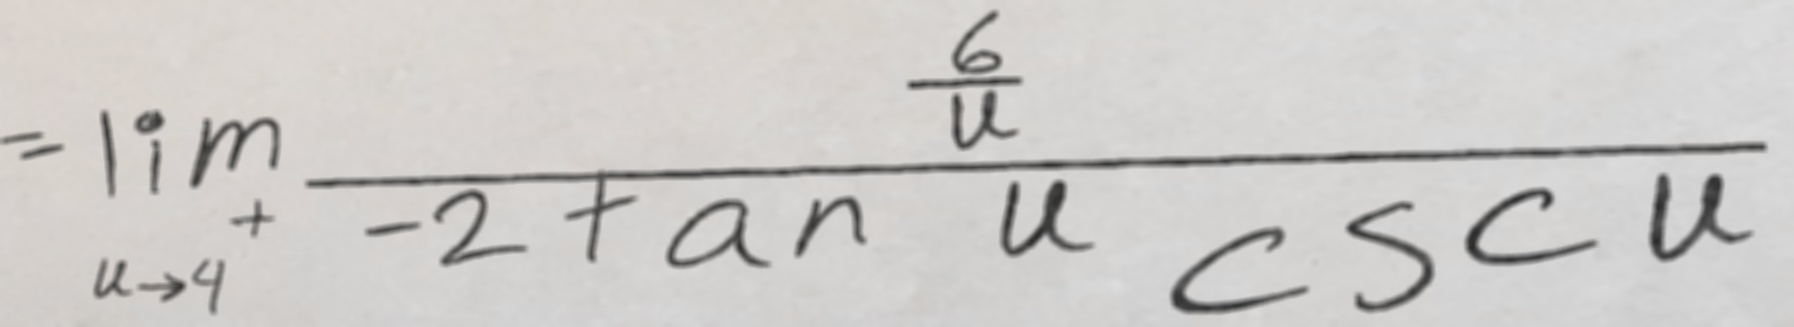 = lim_{u→4^+} \frac{\frac{6}{u}}{-2 tan u csc u}